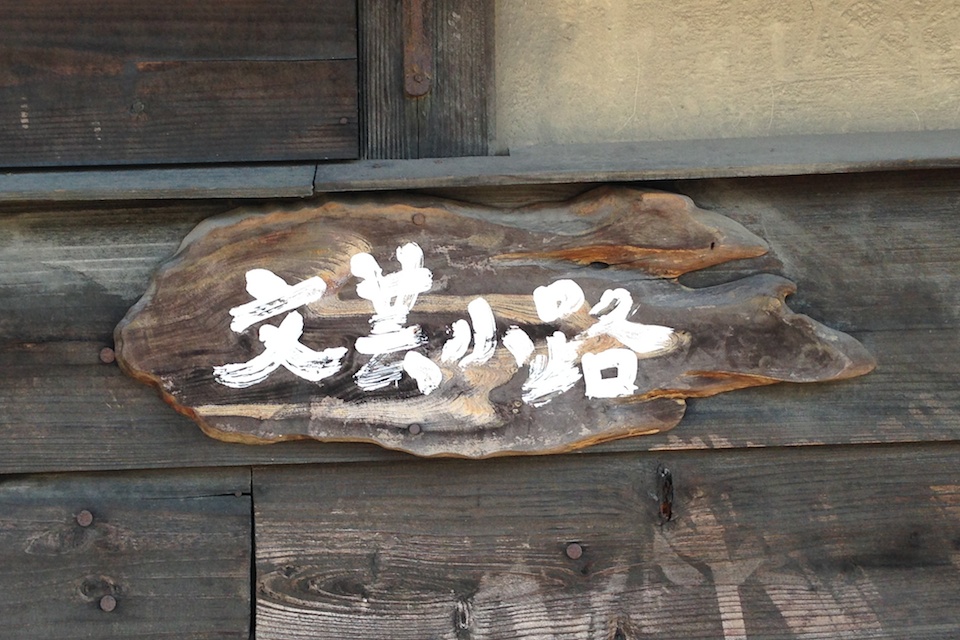 文芸小路